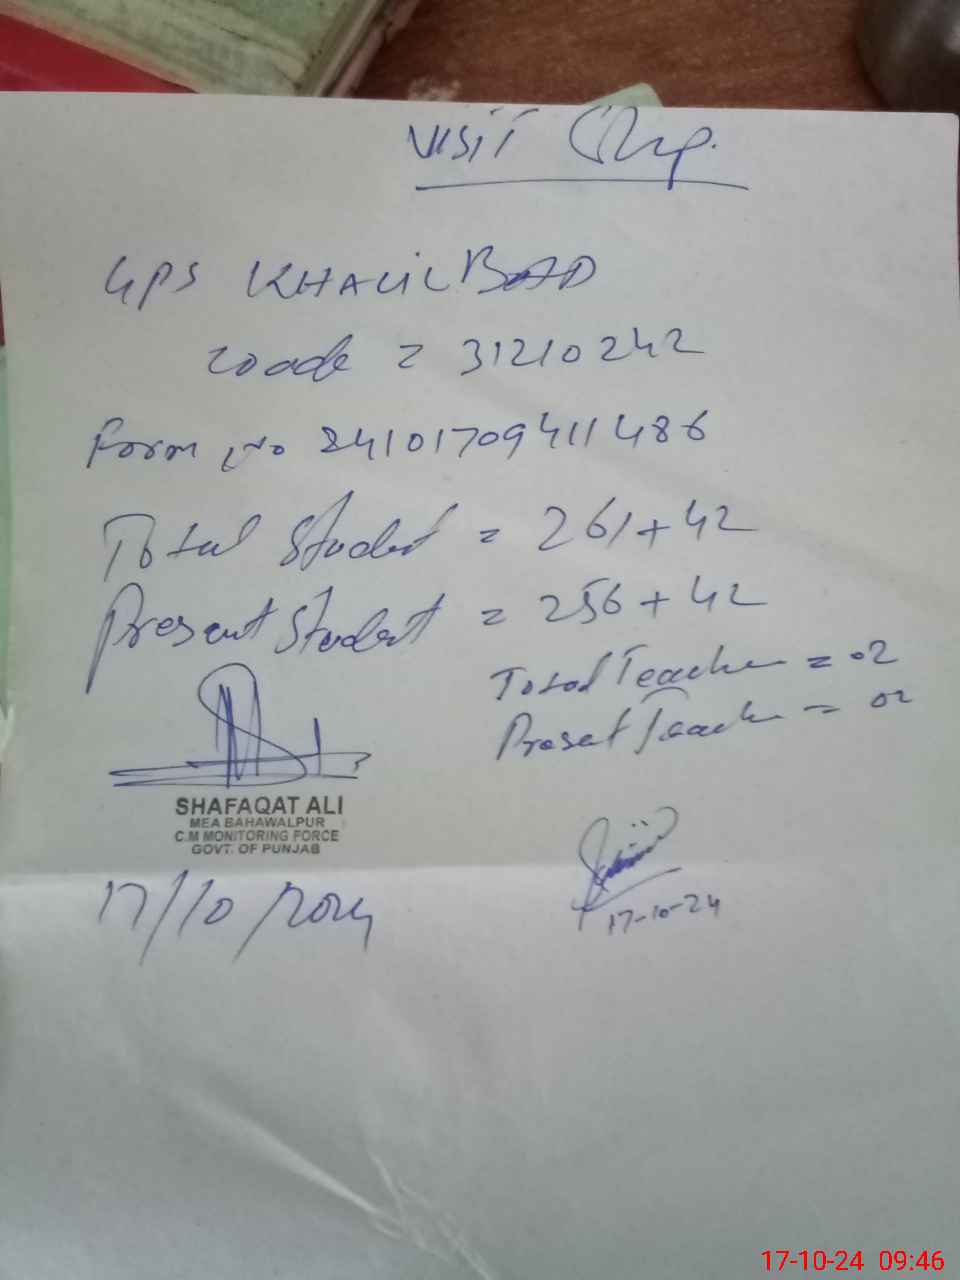 VISIT Slip.
GPS KHALILBAD
Code = 31210242
Form No 24101709411486
Total Student = 261+42
Present Student = 256+42
Total Teacher = 02
Present Teacher = 02
SHAFAQAT ALI
MEA BAHAWALPUR
C.M MONITORING FORCE
GOVT. OF PUNJAB
17/10/2024
17-10-24
17-10-24 09:46